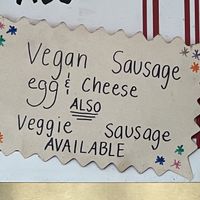 Vegan Sausage
egg & Cheese
ALSO
Veggie Sausage
AVAILABLE